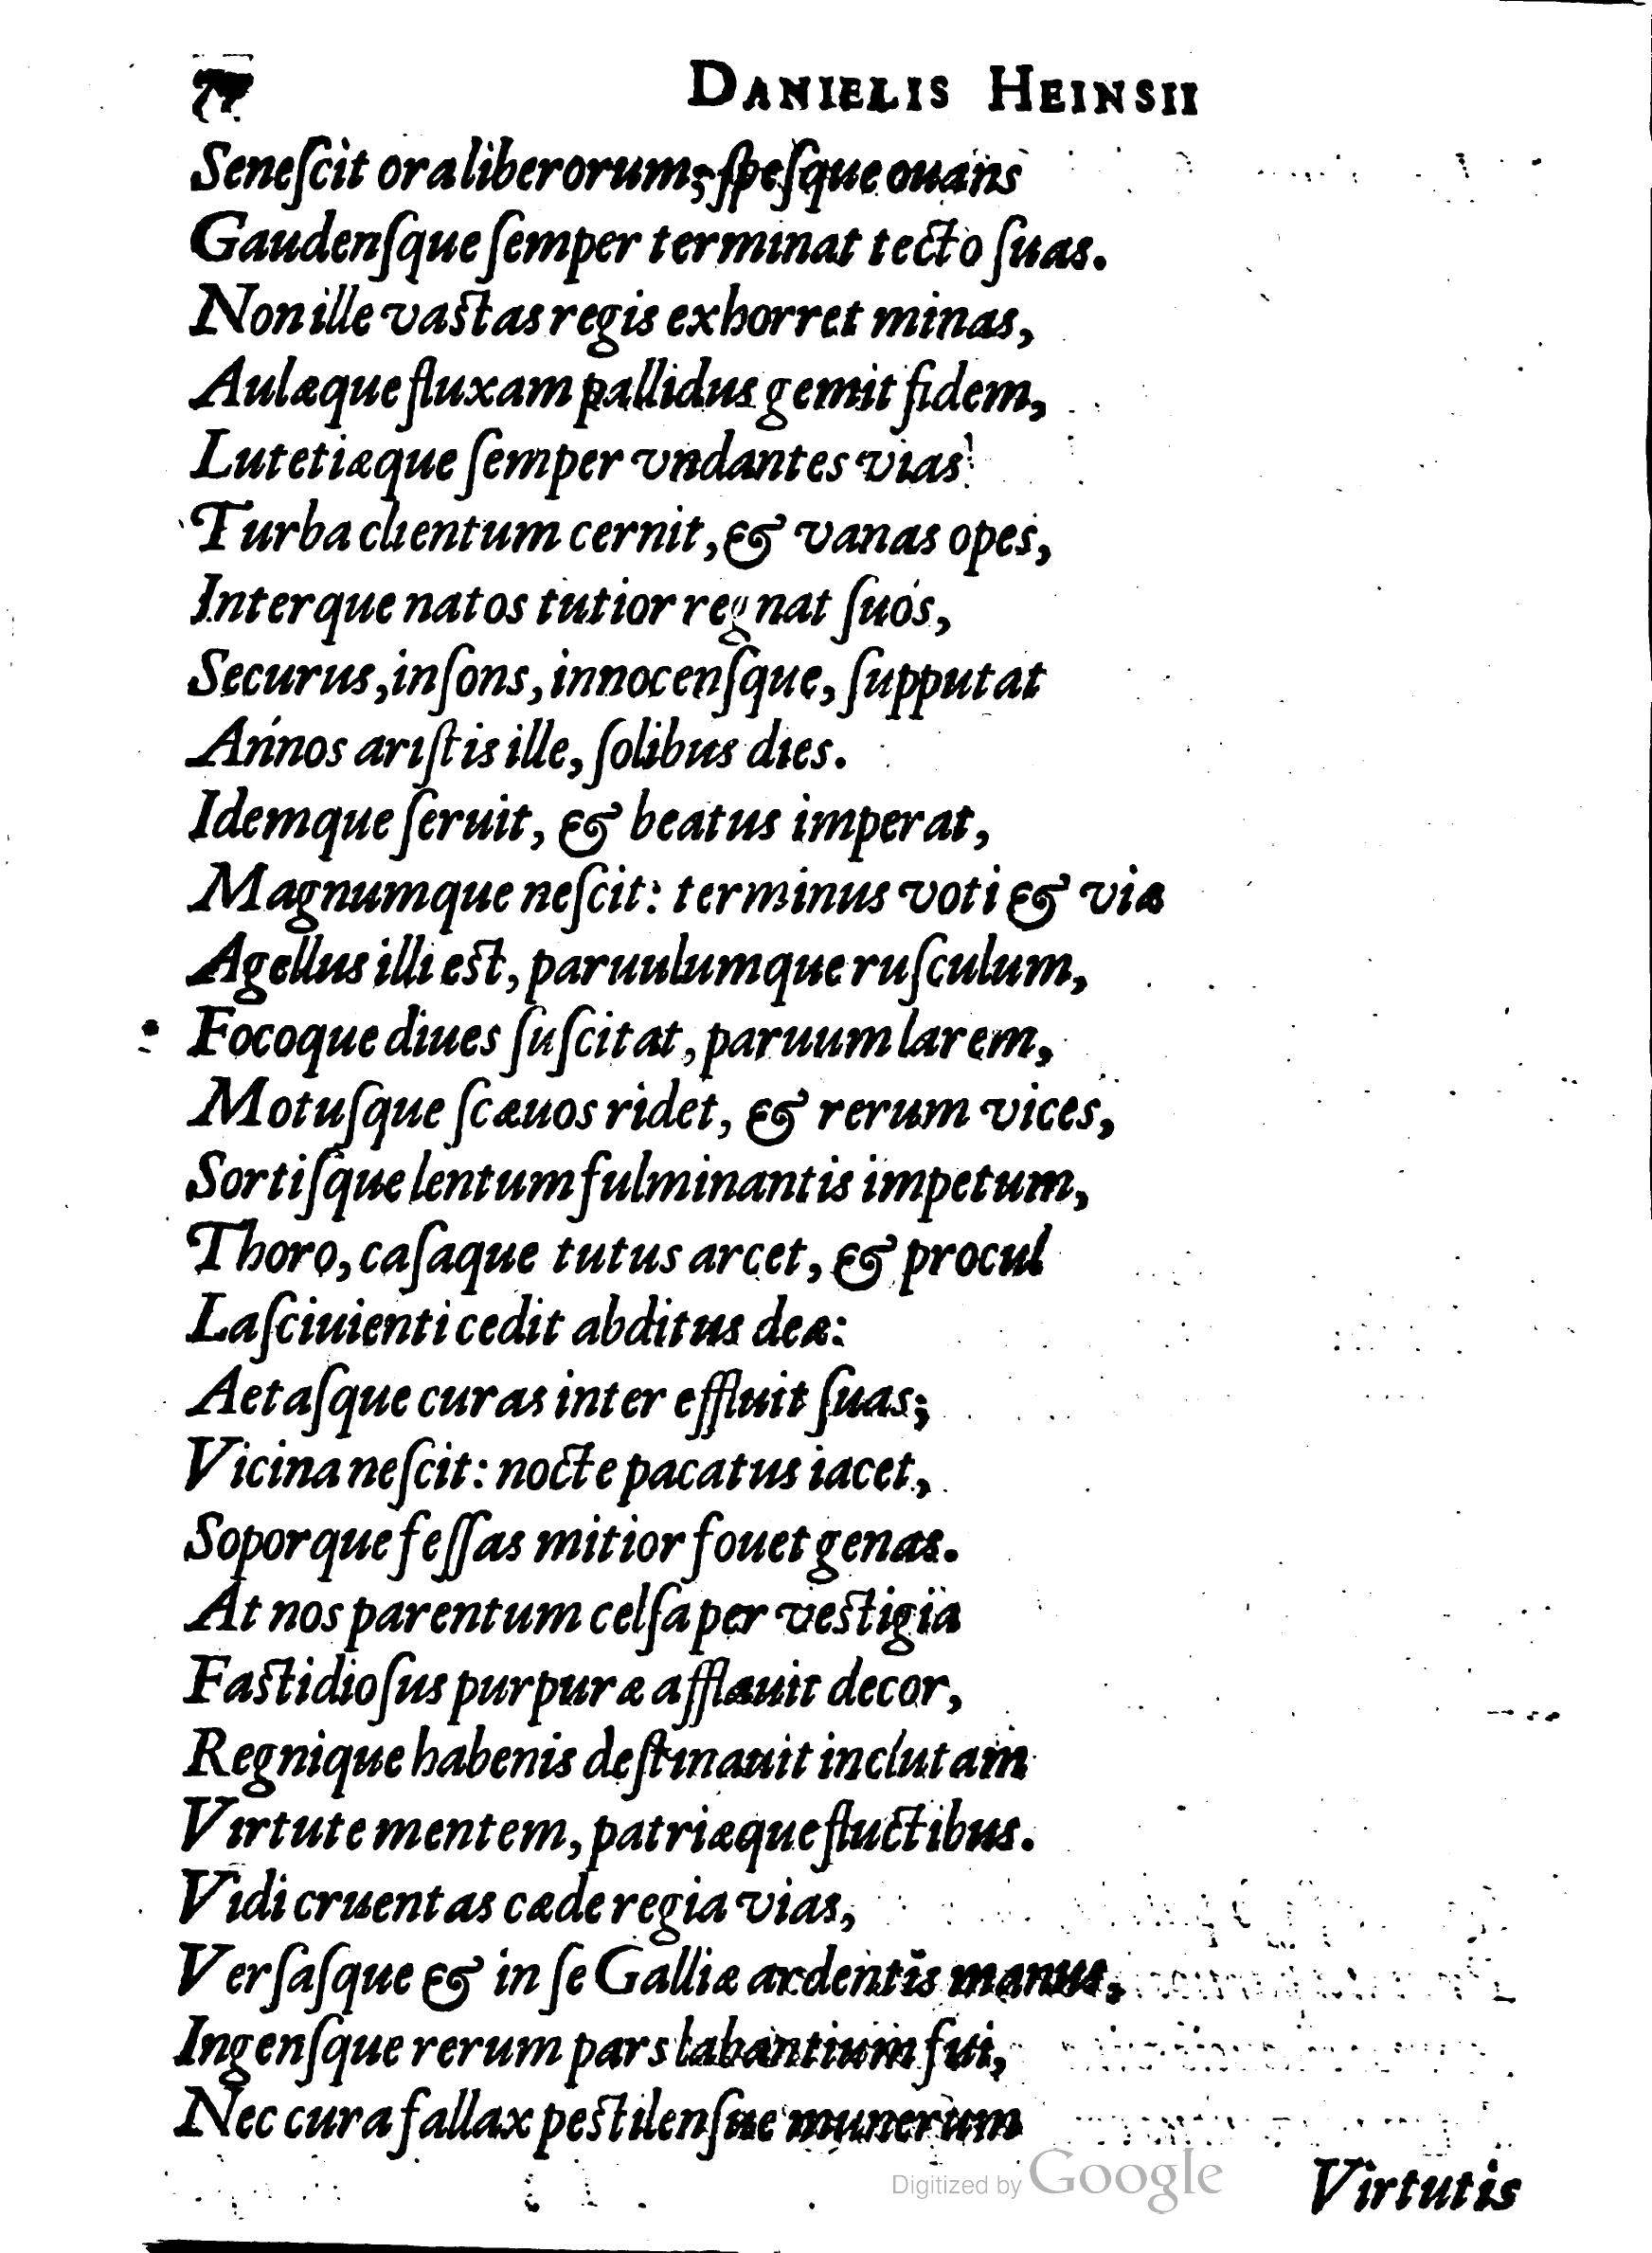 DANIELIS HEINSII
Seneſcit ora liberorum; ſpeſque ouans
Gaudenſque ſemper terminat tecto ſuas.
Non ille vastas regis exhorret minas,
Aulæque fluxam pallidus gemit fidem,
Lutetiæque ſemper vndantes vias
Turba clientum cernit, & vanas opes,
Interque natos tutior regnat ſuos,
Securus, inſons, innocenſque, ſupputat
Annos ariſtis ille, ſolibus dies.
Idemque ſeruit, & beatus imperat,
Magnumque neſcit: terminus voti & viæ
Agellus illi est, paruulumque ruſculum,
Focoque diues ſuſcitat, paruum larem,
Motuſque ſcæuos ridet, & rerum vices,
Sortiſque lentum fulminantis impetum,
Thoro, caſaque tutus arcet, & procul
Laſciuienti cedit abditus deæ:
Aetaſque curas inter effluit ſuas;
Vicina neſcit: nocte pacatus iacet,
Soporque feſſas mitior fouet genas.
At nos parentum celſa per vestigia
Fastidioſus purpuræ afflauit decor,
Regnique habenis deſtinauit inclutam
Virtute mentem, patriæque fluctibus.
Vidi cruentas cæde regia vias,
Verſaſque & in ſe Galliæ ardentis manus,
Ingenſque rerum pars labantium fui,
Nec cura fallax pestilenſue munerum
Virtutis
Digitized by Google